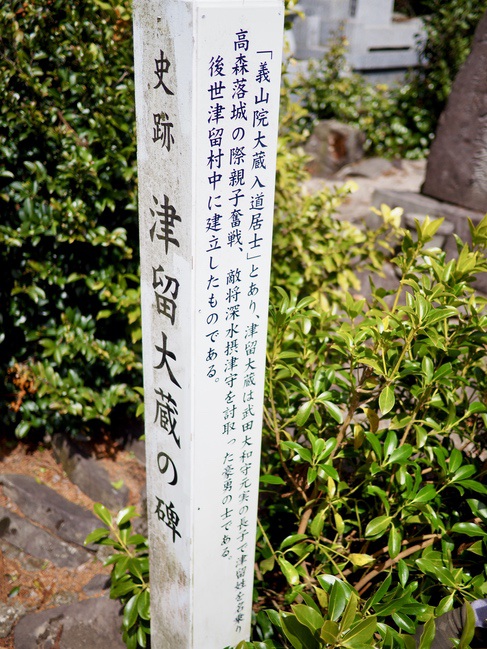 史跡 津留大蔵の碑
「義山院大蔵入道居士」とあり、津留大蔵は武田大和守元実の長子で津留姓を名乗り
高森落城の際親子奮戦、敵将深水摂津守を討取った豪勇の士である。
後世津留村中に建立したものである。